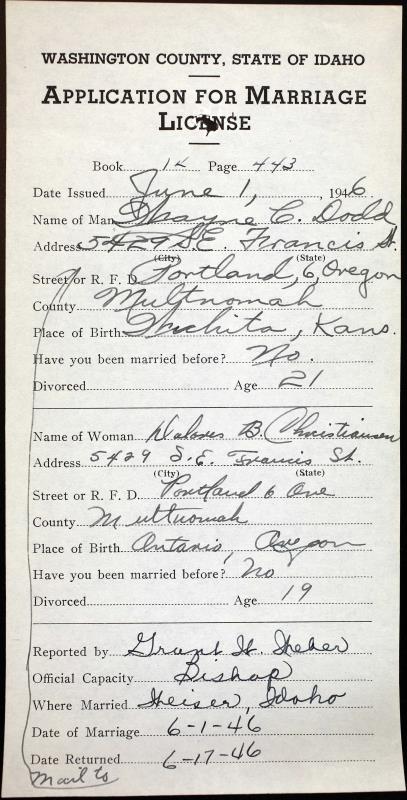 WASHINGTON COUNTY, STATE OF IDAHO
APPLICATION FOR MARRIAGE
LICENSE
Book 14 Page 443
Date Issued June 1, , 1946
Name of Man Thayne C. Dodd
Address 5429 S.E. Francis St.
(City) (State)
Street or R. F. D. Portland, 6, Oregon
County Multnomah
Place of Birth Wichita, Kans.
Have you been married before? No.
Divorced Age 21
Name of Woman Dalores B. Christiansen
Address 5429 S.E. Francis St.
(City) (State)
Street or R. F. D. Portland 6 Ore
County Multnomah
Place of Birth Ontario, Oregon
Have you been married before? no
Divorced Age 19
Reported by Grant H.
Official Capacity Bishop
Where Married Weiser, Idaho
Date of Marriage 6-1-46
Date Returned 6-17-46
Mail to